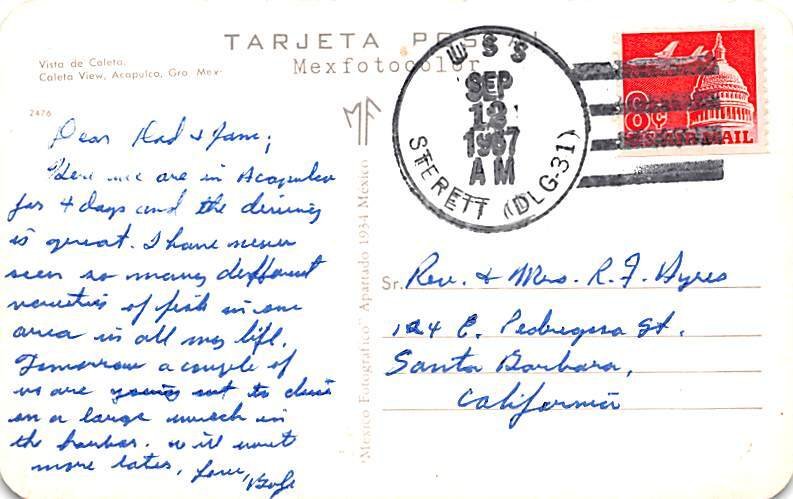 TARJETA POSTAL
Mexfotocolor
Vista de Caleta.
Caleta View, Acapulco, Gro. Mex.
2476
MF
Dear Dad & Jane;
Here we are in Acapulco
for 4 days and the diving
is great. I have never
seen so many different
varieties of fish in one
area in all my life.
Tomorrow a couple of
us are going out to dive
on a large wreck in
the harbor. Will write
more later, Love,
"Mexico Fotografico" Apartado 1934 Mexico
USS
SEP
12
1967
AM
STERETT (DLG-31)
8c
U.S. AIR MAIL
Sr. Rev. & Mrs. R. F. Ayres
124 E. Pedregosa St.
Santa Barbara,
California